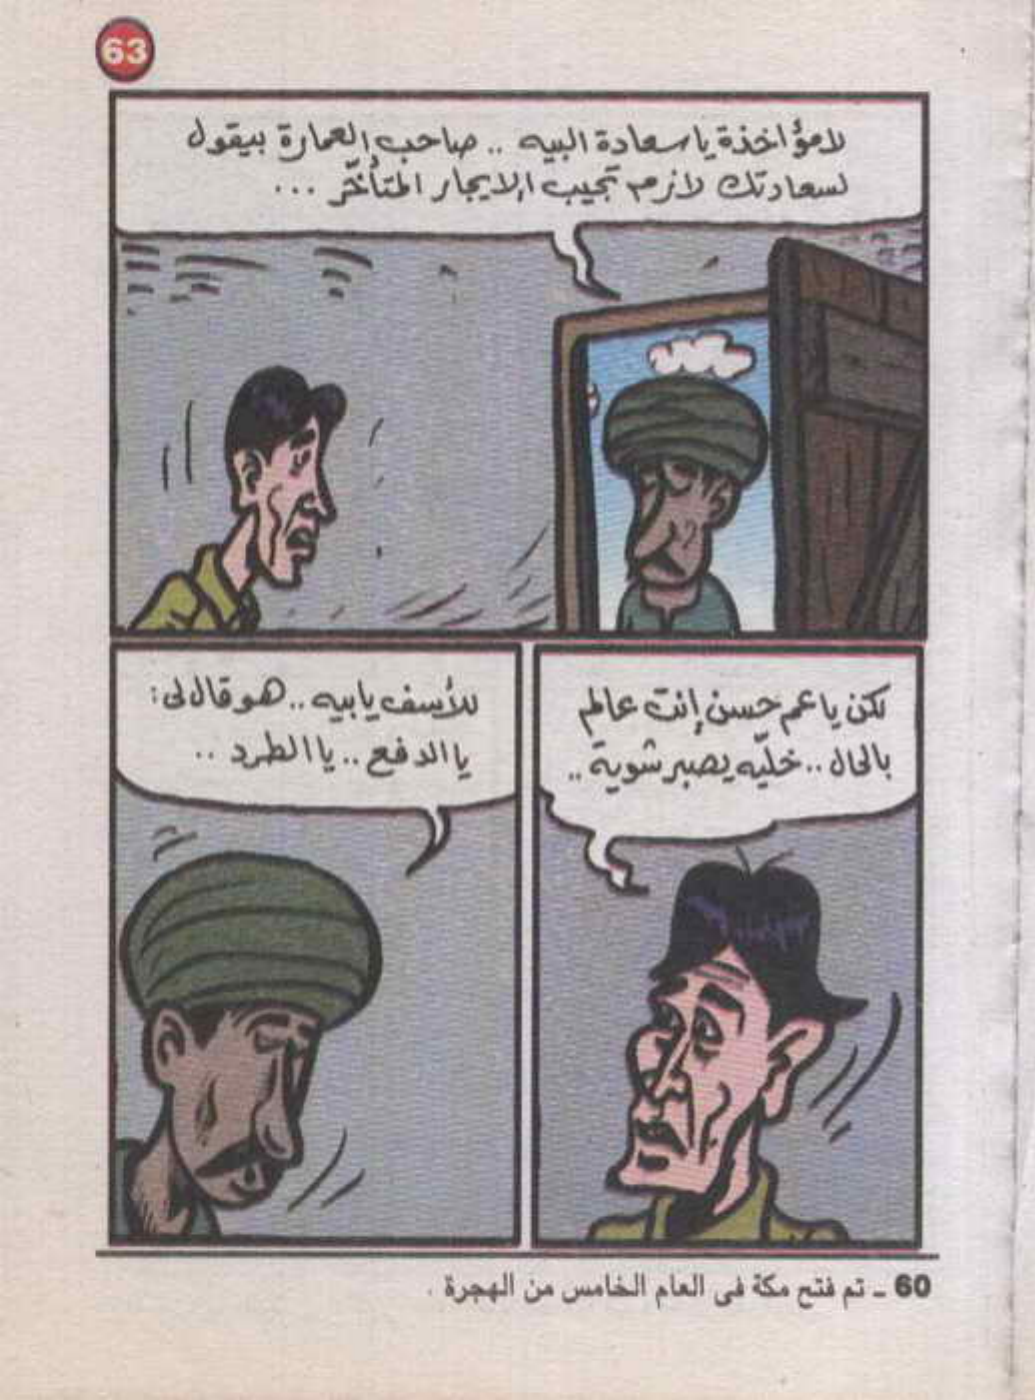 63
لامؤاخذة ياسعادة البيه .. صاحب العمارة بيقول
لسعادتك لازم تجيب الايجار المتأخّر ...
لكن ياعم حسن إنت عالم
بالحال .. خليّه يصبر شوية ..
للأسف يابيه .. هو قال لى :
يا الدفع .. يا الطرد ..
60 ـ تم فتح مكة فى العام الخامس من الهجرة .